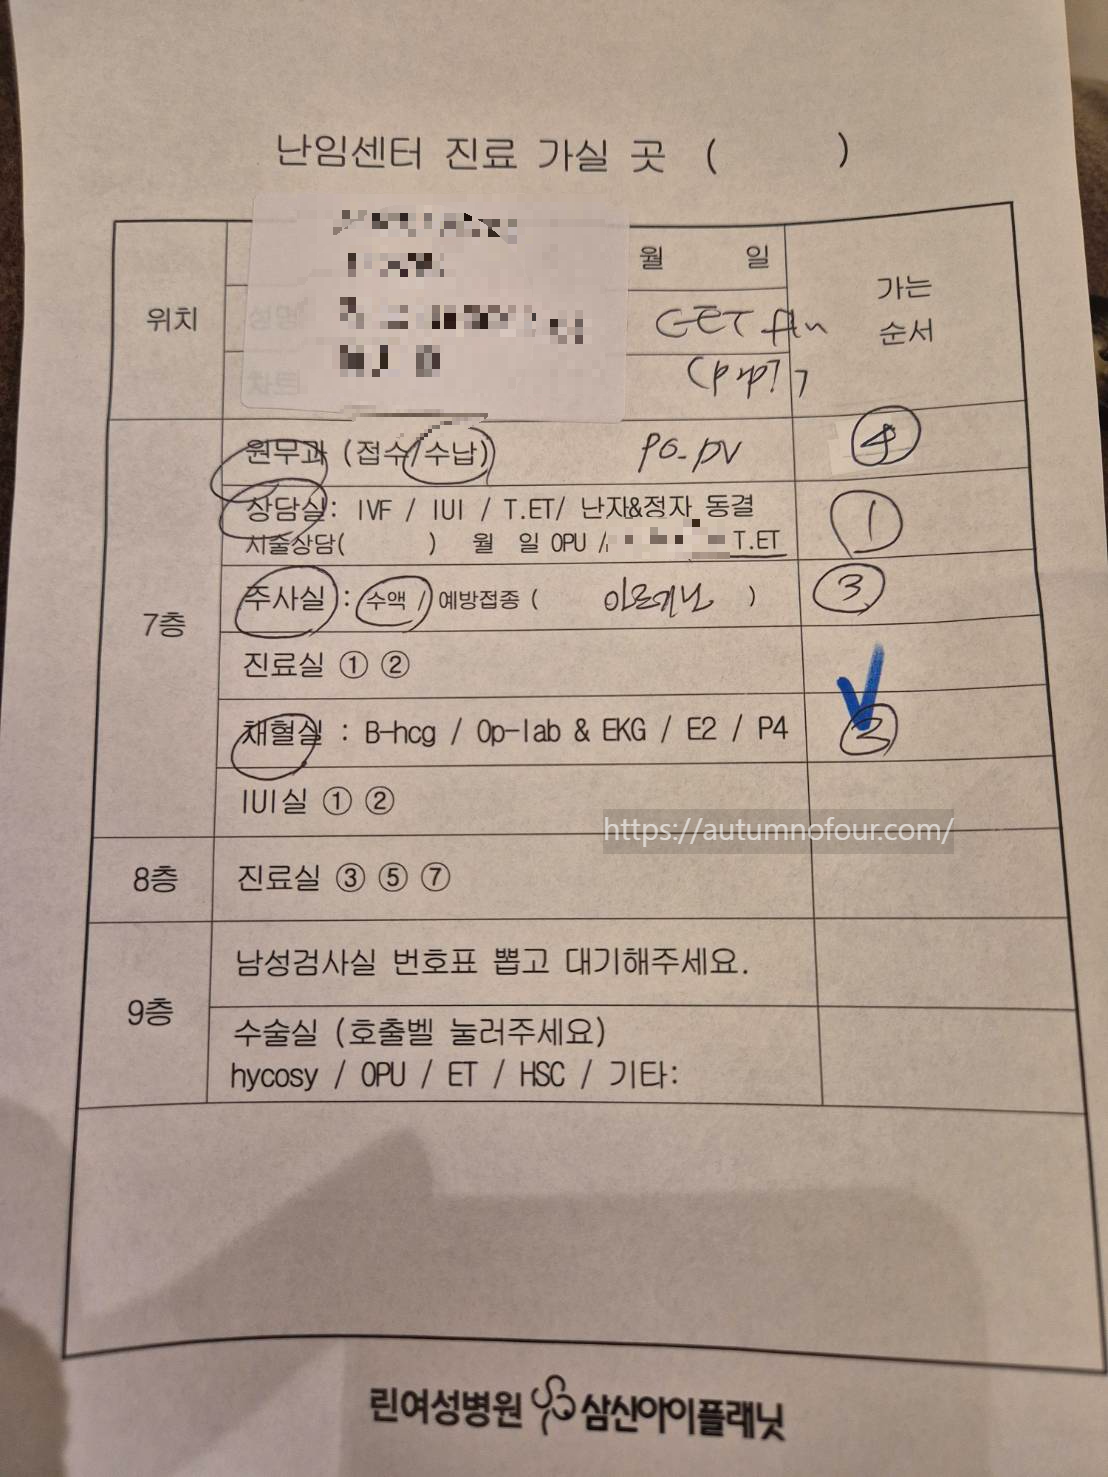 난임센터 진료 가실 곳 ( )
위치
월 일
가는
순서
성명
차트
원무과 (접수/수납) po-pv ④
상담실: IVF / IUI / T.ET/ 난자&정자 동결 ①
시술상담( ) 월 일 OPU / T.ET
7층
주사실 : 수액 / 예방접종 ( ) ③
진료실 ① ②
채혈실 : B-hcg / Op-lab & EKG / E2 / P4 ②
IUI실 ① ②
https://autumnofour.com/
8층 진료실 ③ ⑤ ⑦
9층
남성검사실 번호표 뽑고 대기해주세요.
수술실 (호출벨 눌러주세요)
hycosy / OPU / ET / HSC / 기타:
린여성병원 삼신아이플래닛